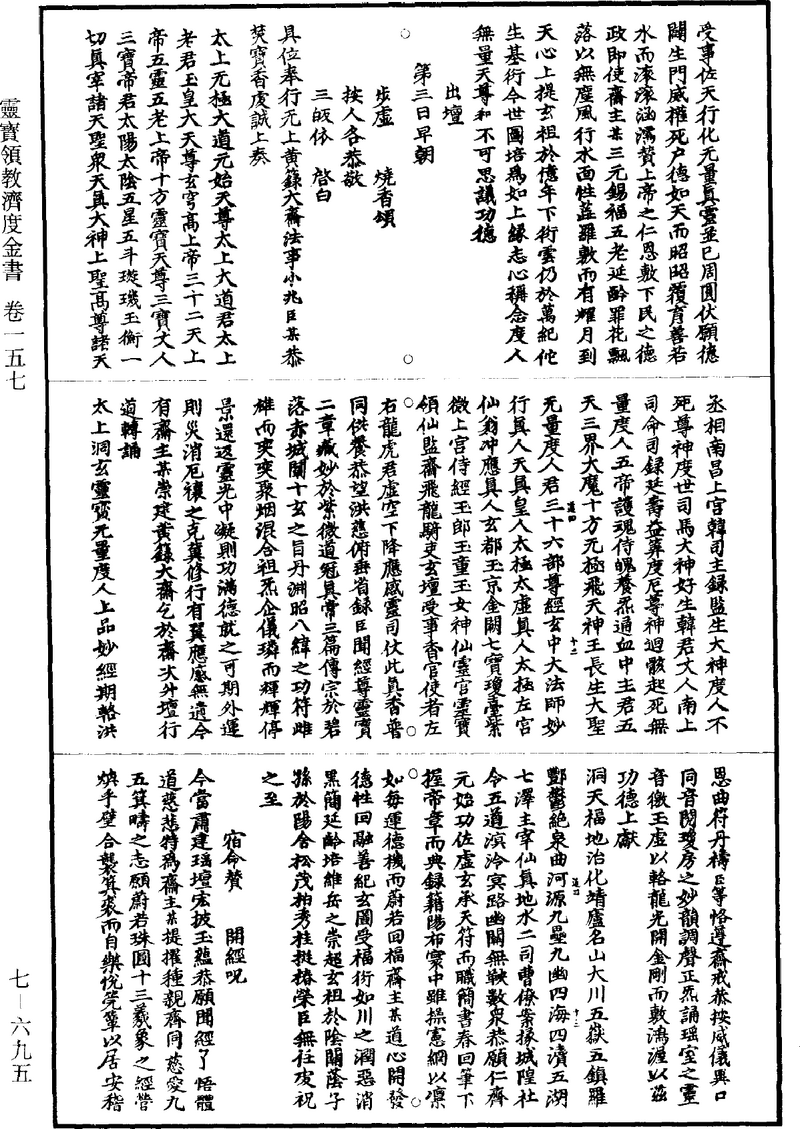 受事佐天行化无量真靈並已周圓伏願德
闢生門威權死户德如天而昭昭覆育善若
水而滚滚涵濡贊上帝之仁恩敷下民之德
政即使齋主某三元錫福五老延齡罪花飄
落以無塵風行水面性蕋羅敷而有耀月到
天心上提玄祖於億年下衍雲仍於萬紀佗
生基衍今世圖培爲如上緣志心稱念度人
無量天尊和不可思議功德
出壇
第三日早朝
步虛　燒香頌
按人各恭敬
三皈依　啓白
具位奉行元上黄籙大齋法事小兆臣某恭
焚寶香虔誠上奏
太上无極大道元始天尊太上大道君太上
老君玉皇大天尊玄穹高上帝三十二天上
帝五靈五老上帝十方靈寶天尊三寶丈人
三寶帝君太陽太陰五星五斗璇璣玉衡一
切真宰諸天聖衆天真大神上聖高尊諸天
丞相南昌上宫韓司主録監生大神度人不
死尊神度世司馬大神好生韓君丈人南上
司命司録延壽益算度厄尊神迴骸起死無
量度人五帝護魂侍魄養炁通血中主君五
天三界大魔十方无極飛天神王長生大聖
无量度人君三十六部尊經玄中大法師妙
行真人天真皇人太極太虛真人太極左宫
仙翁冲應真人玄都玉京金闕七寶瓊臺紫
微上宫侍經玉郎玉童玉女神仙靈官靈寶
領仙監齋飛龍騎吏玄壇受事香官使者左
右龍虎君虛空下降應感靈司仗此真香普
同供養恭望洪慈俯垂省録臣聞經尊靈寶
二章藏妙於紫微道冠真常三篇傳宗於碧
落赤城闡十玄之旨丹淵昭八緯之功符雌
雄而奕奕聚烟混合祖炁企儀璘而輝輝停
景還返靈光中凝則功滿德就之可期外運
則災消厄禳之克冀修行有翼應感無遺今
有齋主某崇建黄籙大齋乞於齋次外壇行
道轉誦
太上洞玄靈寶无量度人上品妙經期輅洪
恩曲符丹禱臣等恪遵齋戒恭按威儀異口
同音閱瓊房之妙韻調聲正炁誦瑶室之靈
音徹玉虛以輅龍光開金剛而敷鴻渥以兹
功德上獻
洞天福地治化靖廬名山大川五嶽五鎮羅
酆鬱絶泉曲河源九壘九幽四海四瀆五湖
七澤主宰仙真地水二司曹僚案掾城隍社
令五道溟泠冥路幽關無鞅數衆恭願仁齊
元始功佐虛玄承天符而職簡書春回筆下
握帝章而典録籍陽布寰中雖操憲綱以凛
如每運德機而蔚若回福齋主某道心開發
德性回融善紀玄圖受福衍如川之潤惡消
黑簡延齡培維岳之崇超玄祖於陰關蔭子
孫於陽舍松茂柏秀桂挺椿榮臣無任虔祝
之至
宿命贊　開經呪
今當肅建瑶壇宏披玉藴恭願聞經了悟體
道慈悲特爲齋主某提攉種親齋同慈愛九
五箕疇之志願蔚若珠圓十三羲象之經營
焕乎璧合襲箕裘而自樂悦筦簟以居安稽
靈寶領教濟度金書　卷一五七
七－六九五